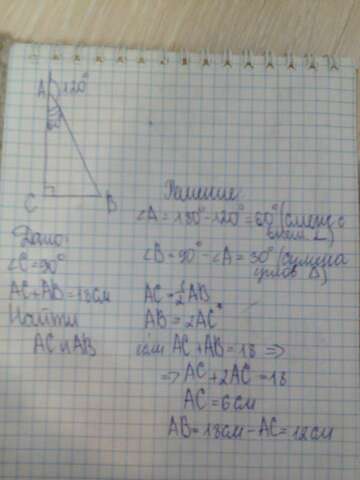 A 120°
60°
C B
Решение:
∠A = 180° - 120° = 60° (смежн. с
внеш. ∠)
Дано:
∠C = 90°
∠B = 90° - ∠A = 30° (сумма
углов Δ)
AC + AB = 18 см
AC = 1/2 AB
Найти
AB = 2AC
AC и AB
если AC + AB = 18 =>
=> AC + 2AC = 18
AC = 6 см
AB = 18 см - AC = 12 см